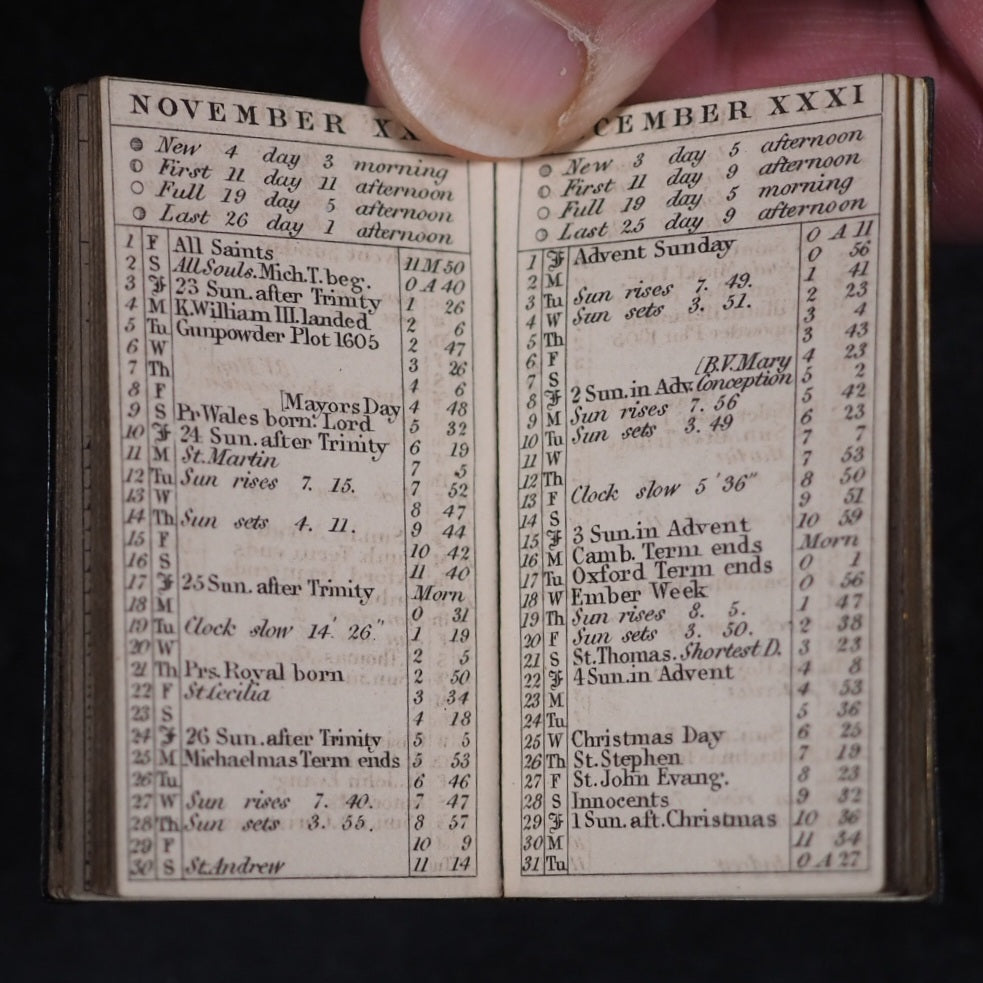 NOVEMBER XX
New 4 day 3 morning
First 11 day 11 afternoon
Full 19 day 5 afternoon
Last 26 day 1 afternoon
1 F All Saints 11 M 50
2 S All Souls. Mich. T. beg. 0 A 40
3 F 23 Sun. after Trinity 1 26
4 M K. William III. landed 2 6
5 Tu Gunpowder Plot 1605 2 47
6 W 3 26
7 Th 4 6
8 F [Mayors Day 4 48
9 S Pr. Wales born. Lord 5 32
10 F 24 Sun. after Trinity 6 19
11 M St. Martin 7 5
12 Tu Sun rises 7. 15. 7 52
13 W 8 47
14 Th Sun sets 4. 11. 9 44
15 F 10 42
16 S 11 40
17 F 25 Sun. after Trinity Morn
18 M 0 31
19 Tu Clock slow 14' 26" 1 19
20 W 2 5
21 Th Prs. Royal born 2 50
22 F St. Cecilia 3 34
23 S 4 18
24 F 26 Sun. after Trinity 5 5
25 M Michaelmas Term ends 5 53
26 Tu 6 46
27 W Sun rises 7. 40. 7 47
28 Th Sun sets 3. 55. 8 57
29 F 10 9
30 S St. Andrew 11 14
CEMBER XXXI
New 3 day 5 afternoon
First 11 day 9 afternoon
Full 19 day 5 morning
Last 25 day 9 afternoon
1 F Advent Sunday 0 A 11
2 M 0 56
3 Tu Sun rises 7. 49. 1 41
4 W Sun sets 3. 51. 2 23
5 Th 3 4
6 F 3 43
7 S [B.V. Mary 4 23
8 F 2 Sun. in Adv. Conception 5 2
9 M Sun rises 7. 56 5 42
10 Tu Sun sets 3. 49 6 23
11 W 7 7
12 Th 7 53
13 F Clock slow 5' 36" 8 50
14 S 9 51
15 F 3 Sun. in Advent 10 59
16 M Camb. Term ends Morn
17 Tu Oxford Term ends 0 1
18 W Ember Week 0 56
19 Th Sun rises 8. 5. 1 47
20 F Sun sets 3. 50. 2 38
21 S St. Thomas. Shortest D. 3 23
22 F 4 Sun. in Advent 4 8
23 M 4 53
24 Tu 5 36
25 W Christmas Day 6 25
26 Th St. Stephen 7 19
27 F St. John Evang. 8 23
28 S Innocents 9 32
29 F 1 Sun. aft. Christmas 10 36
30 M 11 34
31 Tu 0 A 27